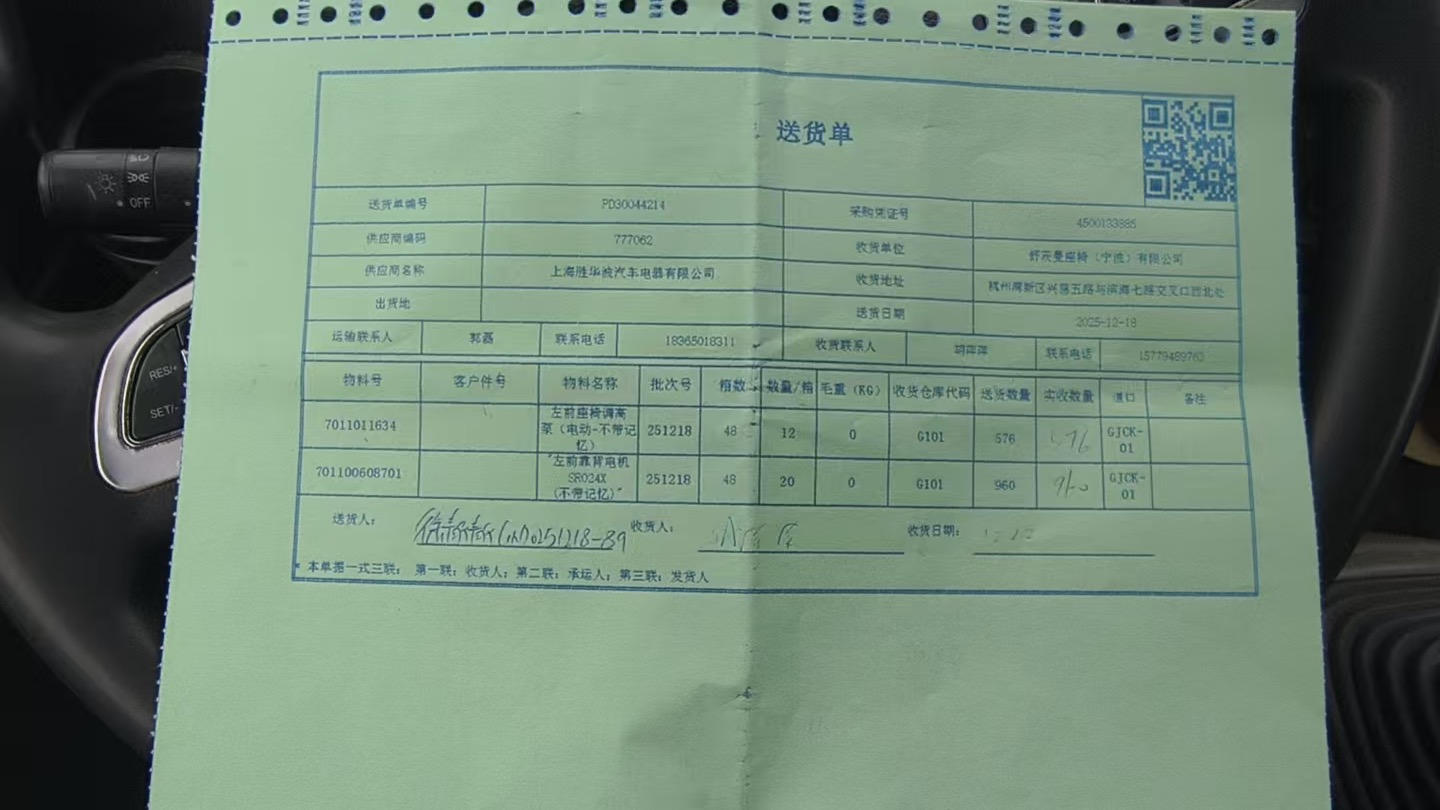 送货单
送货单编号 PD30044214 采购凭证号 4500133885
供应商编码 777062 收货单位 舒茨曼座椅（宁波）有限公司
供应商名称 上海胜华波汽车电器有限公司 收货地址 杭州湾新区兴慈五路与滨海七路交叉口西北处
出货地 送货日期 2025-12-18
运输联系人 郭磊 联系电话 18365018311 收货联系人 联系电话 15779489763
物料号 客户件号 物料名称 批次号 箱数 数量/箱 毛重（KG） 收货仓库代码 送货数量 实收数量 道口 备注
7011011634 左前座椅调高泵（电动-不带记忆） 251218 48 12 0 G101 576 576 GJCK-01
701100608701 左前靠背电机SR024X（不带记忆） 251218 48 20 0 G101 960 960 GJCK-01
送货人： 收货人： 收货日期：
本单据一式三联： 第一联：收货人；第二联：承运人；第三联：发货人
OFF
RES/+
SET/-